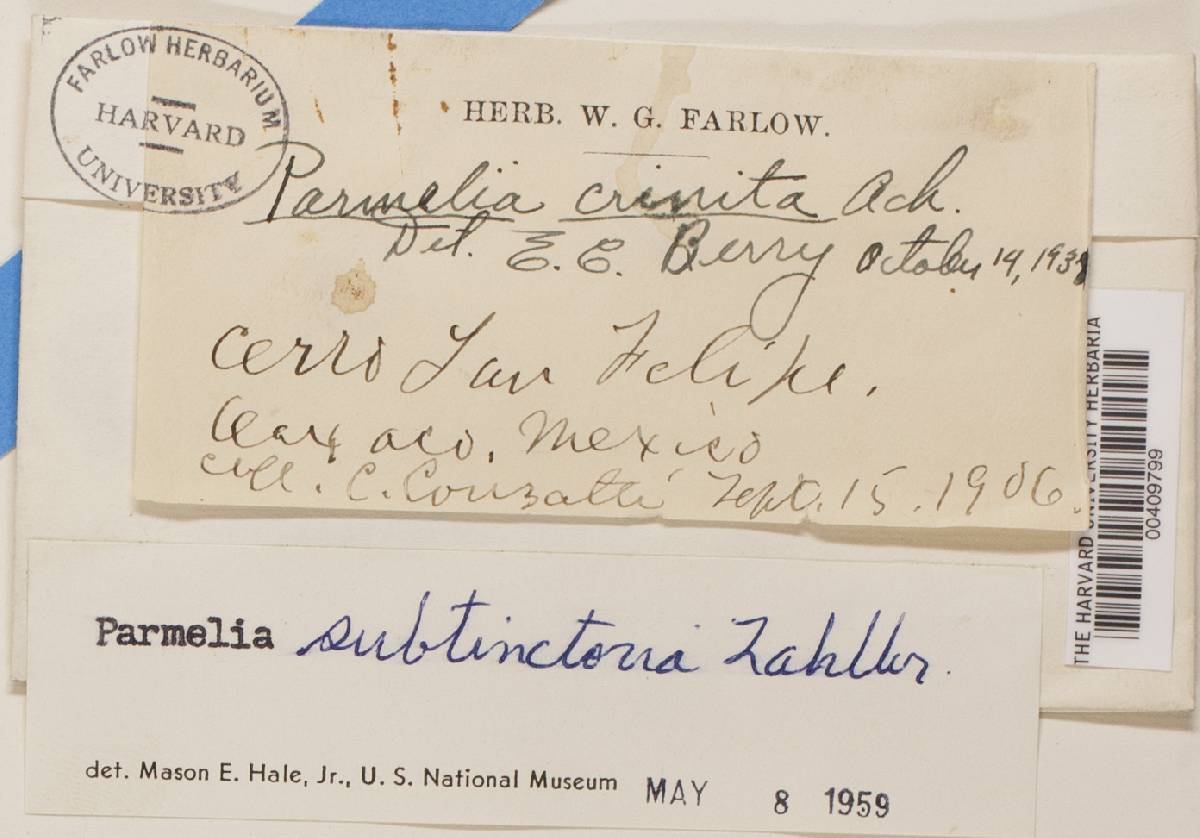 FARLOW HERBARIUM
HARVARD
UNIVERSITY
HERB. W. G. FARLOW.
Parmelia crinita Ach.
Det. E. C. Berry October 14, 193
Cerro San Felipe,
Oaxaco, Mexico
coll. C. Conzatti Sept. 15. 1906.
THE HARVARD UNIVERSITY HERBARIA
00409799
Parmelia subtinctoria Zahlbr.
det. Mason E. Hale, Jr., U. S. National Museum MAY 8 1959